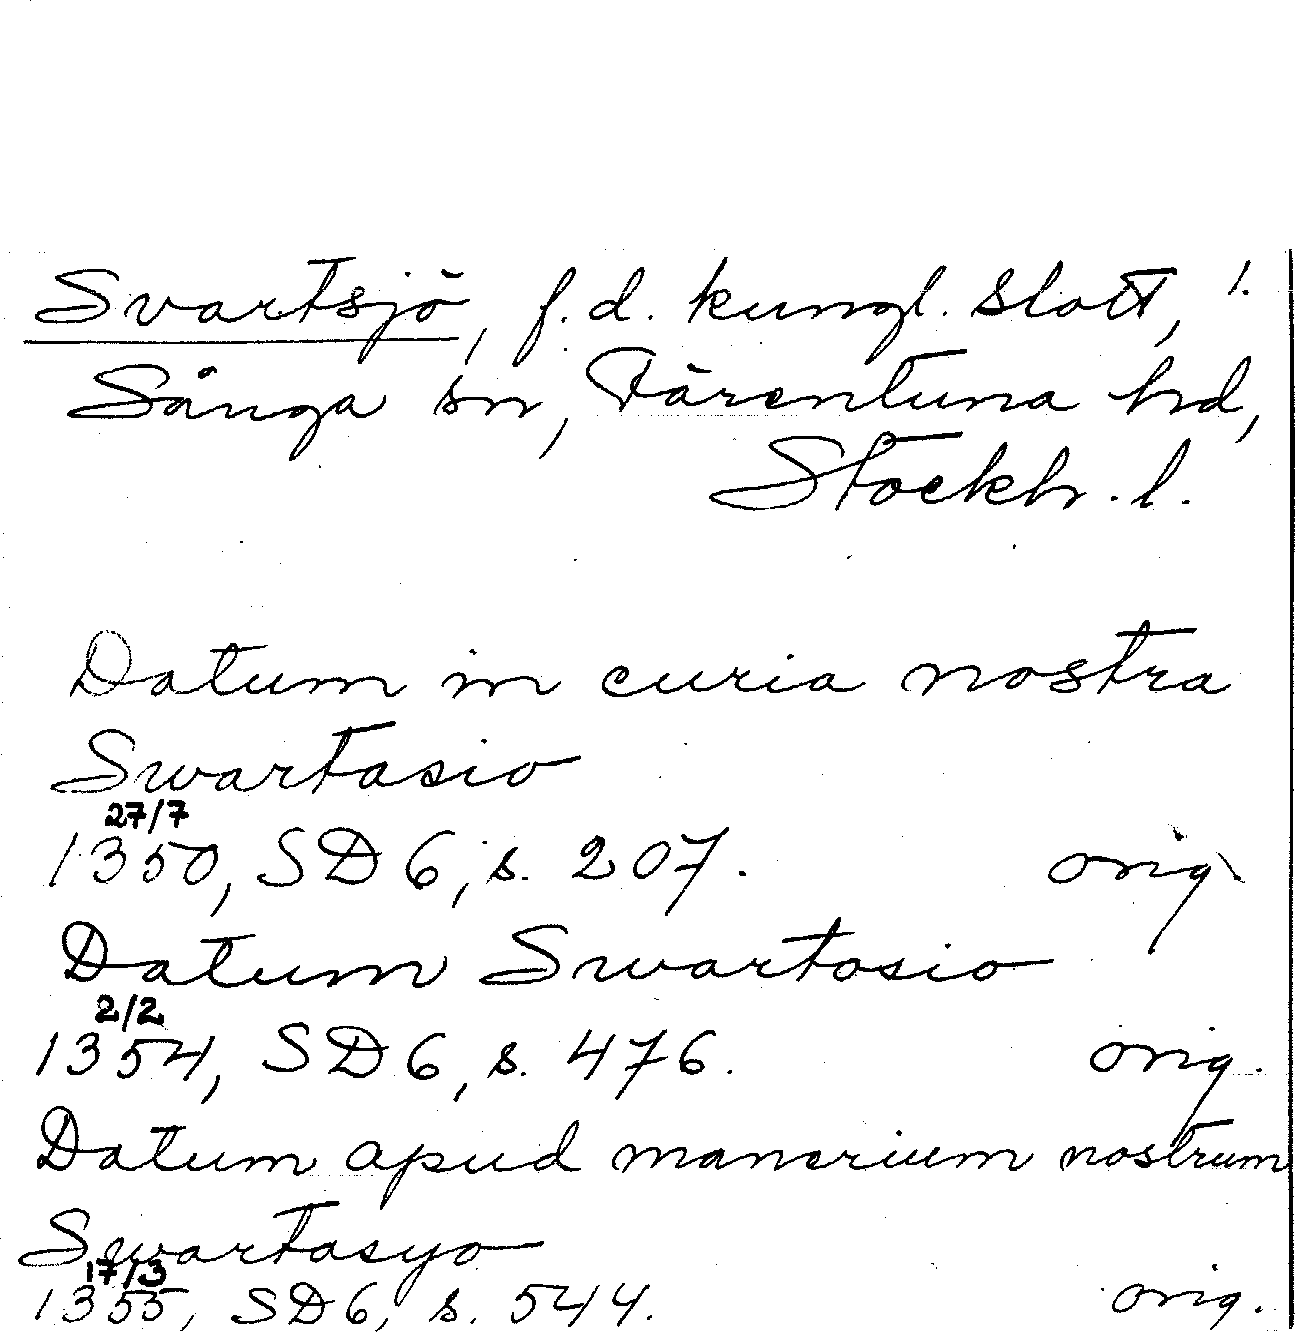 Svartsjö, f.d. kungl. slott, 1.
Sånga sn, Färentuna hd,
Stockh. l.
Datum in curia nostra
Swartasio
27/7
1350, SD 6, s. 207. orig.
Datum Swartosio
2/2
1354, SD 6, s. 476. orig.
Datum apud manerium nostrum
Swartasyo
17/3
1355, SD 6, s. 544. orig.